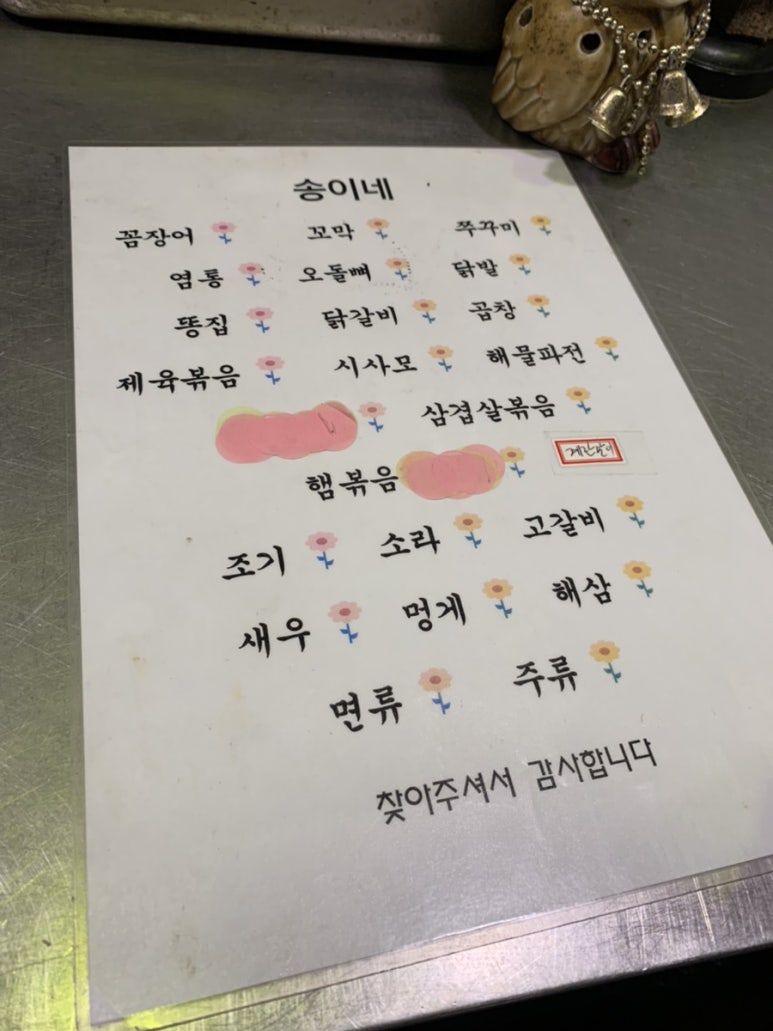 송이네
꼼장어 꼬막 쭈꾸미
염통 오돌뼈 닭발
똥집 닭갈비 곱창
제육볶음 시사모 해물파전
삼겹살볶음
햄볶음 계란말이
조기 소라 고갈비
새우 멍게 해삼
면류 주류
찾아주셔서 감사합니다